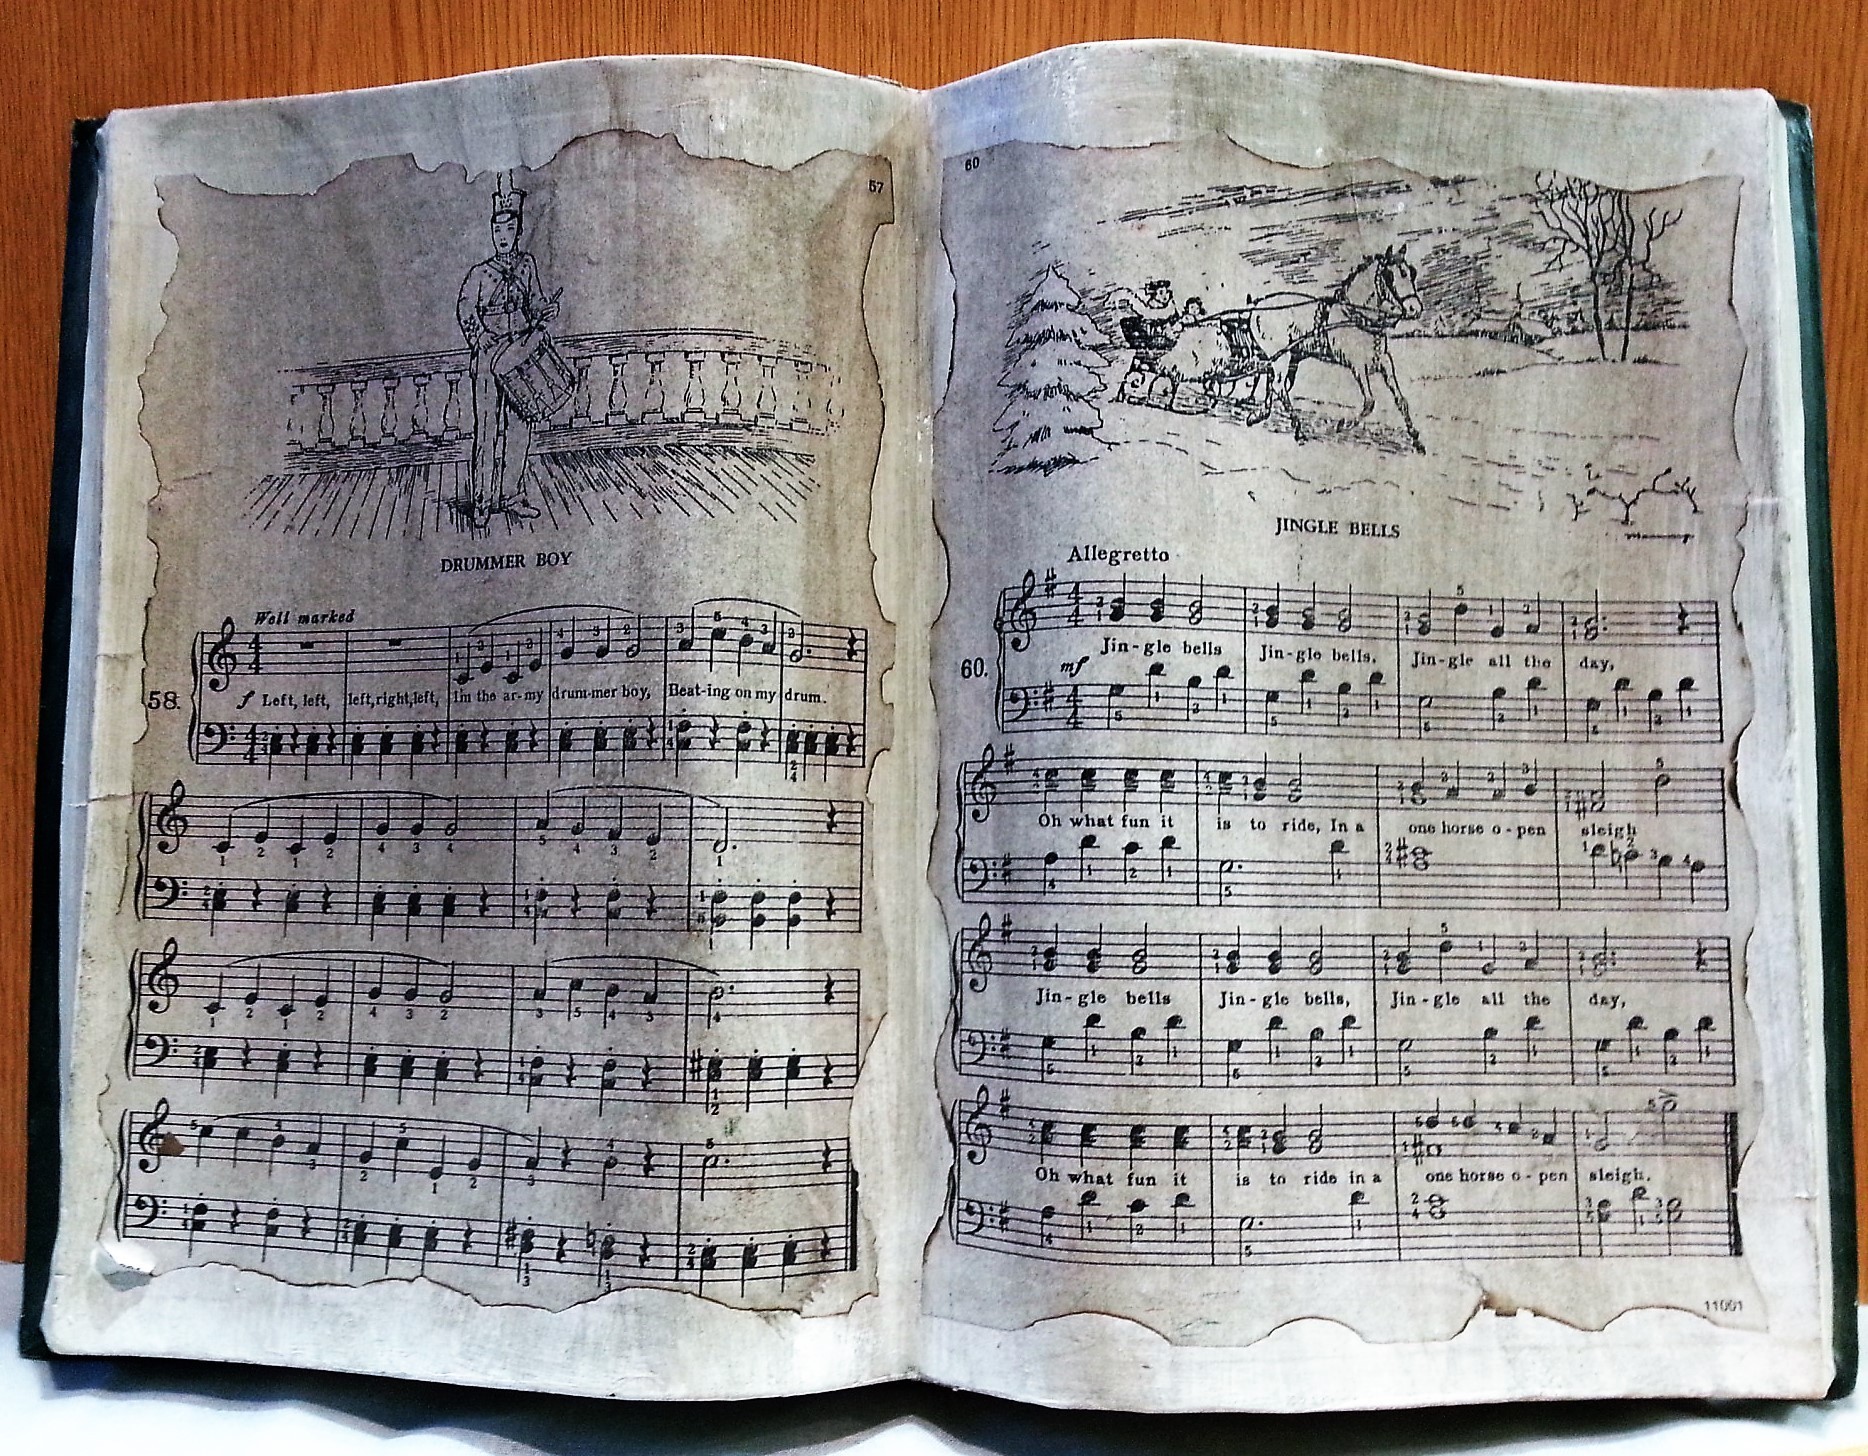 57
DRUMMER BOY
Well marked
58.
f Left, left, left, right, left, I'm the ar-my drum-mer boy, Beat-ing on my drum.
60
JINGLE BELLS
Allegretto
60.
mf
Jin-gle bells Jin-gle bells, Jin-gle all the day,
Oh what fun it is to ride, In a one horse o-pen sleigh
Jin-gle bells Jin-gle bells, Jin-gle all the day,
Oh what fun it is to ride in a one horse o-pen sleigh.
11001